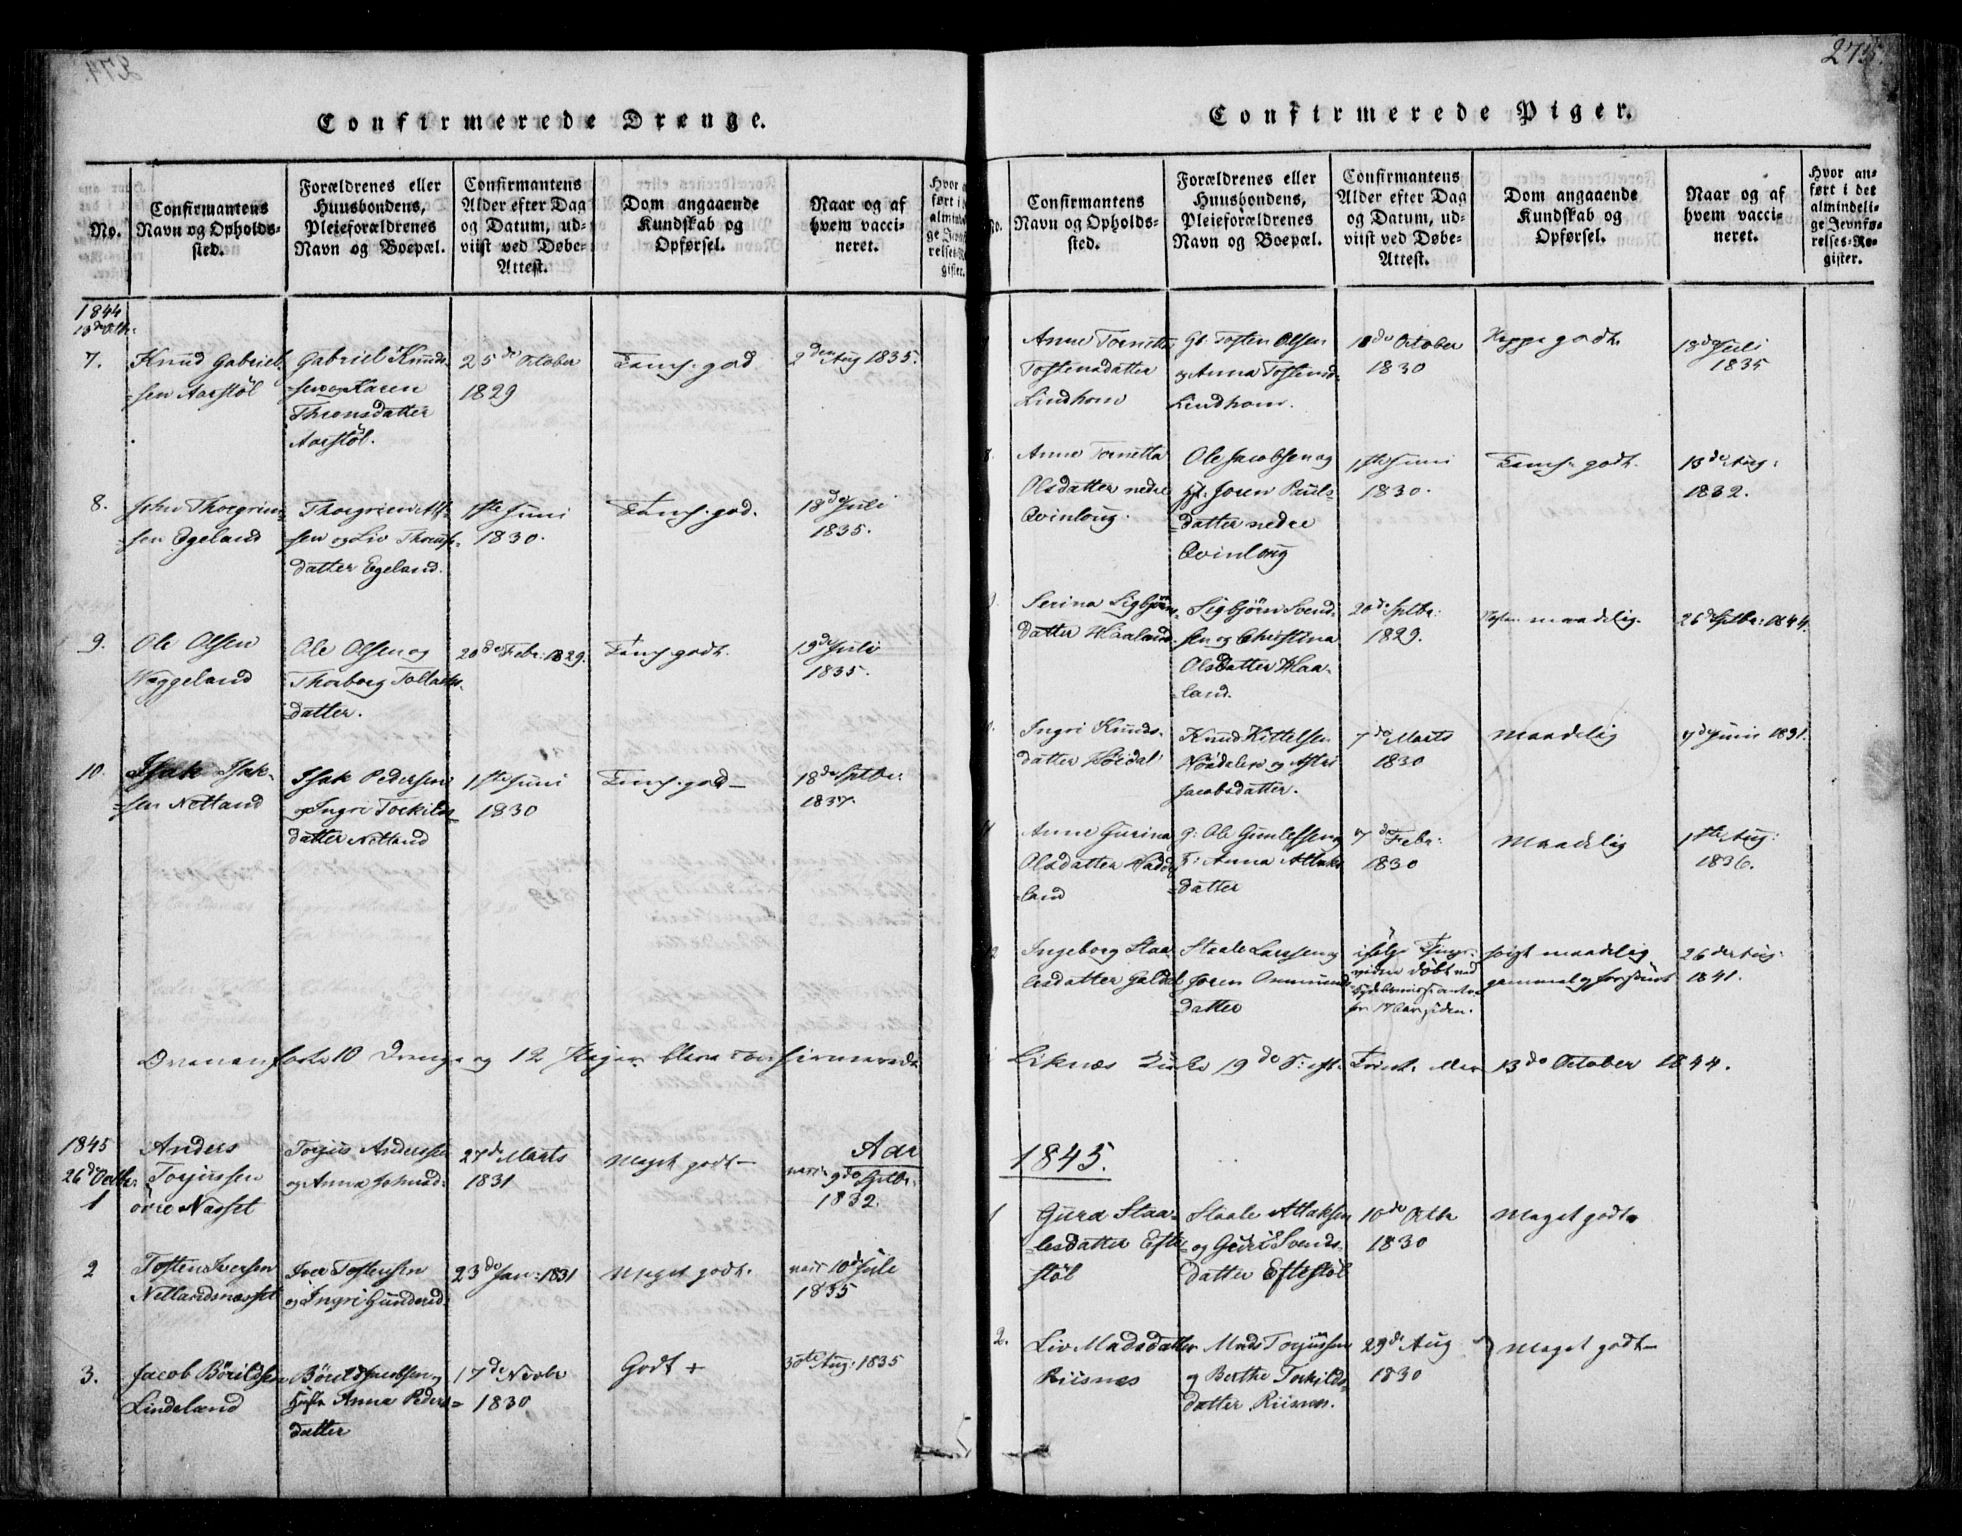 274.
Confirmerede Drenge.
No.
Confirmantens
Navn og Opholds-
sted.
Forældrenes eller
Huusbondens,
Pleieforældrenes
Navn og Boepæl.
Confirmantens
Alder efter Dag
og Datum, ud-
viist ved Døbe-
Attest.
Dom angaaende
Kundskab og
Opførsel.
Naar og af
hvem vacci-
neret.
1844
13de Octb:
7.
Knud Gabriel-
sen Aarstöl
Gabriel Knuds-
sen og Karen
Thronsdatter
Aarstöl.
25de October
1829
Temsj. god
2den Aug 1835.
8.
John Thorgrim-
sen Egeland
Thorgrim
sen og Liv
datter Egeland.
1ste Juni
1830.
Temsj. god.
18de Juli
1835.
9.
Ole Olsen
Waggeland
Ole Olsen og
Thorborg Tollaks-
datter.
20de Febr: 1829.
Temsj godt.
19de Juli
1835.
10.
Isak Isak-
sen Netland
Isak Pedersen
og Ingri Torkilds-
datter Netland
1ste Juni
1830
Temsj. god
18de Septbr:
1837.
Ovenanførte 10 Drenge og 12 Piger bleve confirmerede
1845
26de Octbr:
1
Anders
Torjussen
övre Næsset
Torjus Anderssen
og Anna
27de Marts
1831
Meget godt
9de Septbr:
1832.
2
Tosten Iversen
Netlandsnæsset
Iver Tostensen
og Ingri
23de Jan: 1831
Meget godt.
10de Juli
1835
3.
Jacob Börildsen
Lindeland
Börild Jacobsen og
Hustr Anna Peders-
datter
17de Novbr
1830
Godt +
30te Aug: 1835
275.
Confirmerede Piger.
No.
Confirmantens
Navn og Opholds-
sted.
Forældrenes eller
Huusbondens,
Pleieforældrenes
Navn og Boepæl.
Confirmantens
Alder efter Dag
og Datum, ud-
viist ved Døbe-
Attest.
Dom angaaende
Kundskab og
Opførsel.
Naar og af
hvem vacci-
neret.
Hvor an-
ført i det
almindeli-
ge Jevnfø-
relses-Re-
gister.
Anne Tornette
Tostensdatter
Lindhom
Tosten Olsen
og Anna Tostensd-
Lindhom.
18de October
1830
godt.
18de Juli
1835
Anne Tornetta
Olsdatter nedre
Qvinloug.
Ole Jacobsen og
Joren Pauls-
datter nedre
Qvinloug
1ste Juni
1830.
Temsj. godt.
13de Aug:
1832.
Serina Sigbjörns-
datter Haaland.
Sigbjörn Svend-
sen og Christina
Olsdatter Haa-
land.
20de Septbr:
1829.
maadelig.
26de Septbr: 1844.
Ingri Knuds-
datter Höidal
Knud Kittelsen
og
Jacobsdatter.
7de Marts
1830
Maadelig
7de Juni 1831.
Anne Gurina
Olsdatter
land
Ole
Anna Atlaks-
datter
7de Febr:
1830
Maadelig
1ste Aug:
1836.
Ingeborg Staa-
lesdatter
Staale Larssen og
Joren
datter
ifølge
döbt ved
maadelig
gammel og
26de Aug:
1841.
Liknæs Kirke 19de S: eft. Trinit. den 13de October 1844.
1845.
1
Gurd Staa-
lesdatter Efte-
stöl
Staale Atlaksen
og Guri Svends-
datter Eftestöl
10de Octbr
1830
Meget godt
2.
Liv Madsdatter
Riisnes
Mads Torjussen
og Berthe Torkilds-
datter Riisnes.
29de Aug
1830
Meget godt